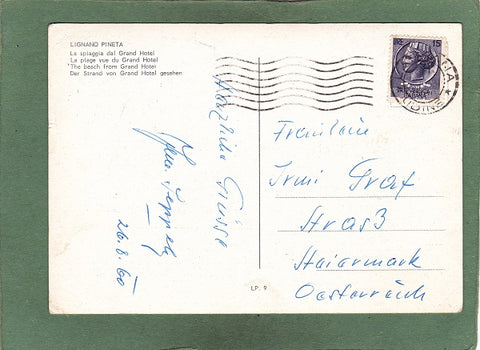 LIGNANO PINETA
La spiaggia dal Grand Hotel
La plage vue du Grand Hotel
The beach from Grand Hotel
Der Strand von Grand Hotel gesehen
Herzliche Grüsse
26.8.60
15
UDINE
Fräulein
Irmi Graf
Straß
Steiermark
Oesterreich
LP. 9